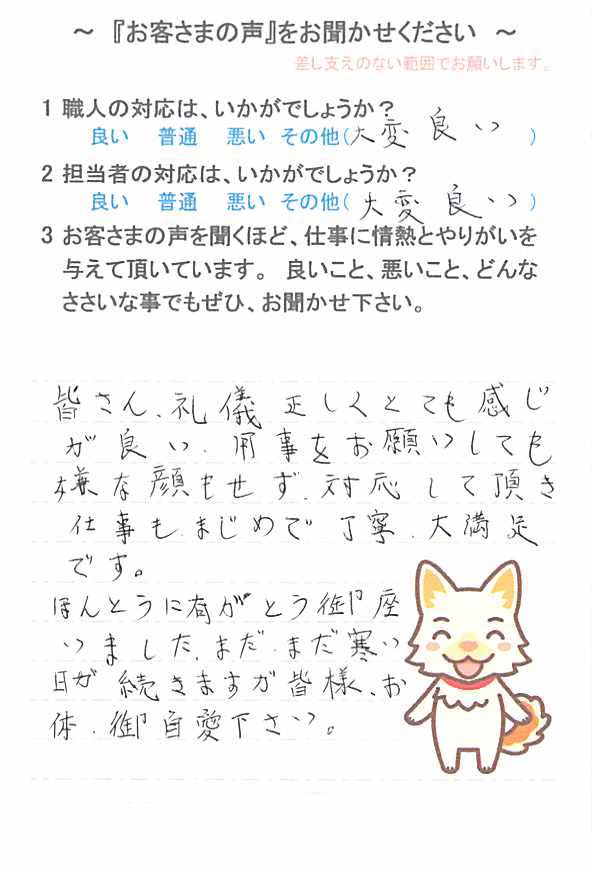 ～ 『お客さまの声』をお聞かせください ～
差し支えのない範囲でお願いします。
1 職人の対応は、いかがでしょうか？
良い 普通 悪い その他(大変良い)
2 担当者の対応は、いかがでしょうか？
良い 普通 悪い その他(大変良い)
3 お客さまの声を聞くほど、仕事に情熱とやりがいを
与えて頂いています。 良いこと、悪いこと、どんな
ささいな事でもぜひ、お聞かせ下さい。
皆さん、礼儀正しくとても感じ
が良い、用事をお願いしても
嫌な顔もせず、対応して頂き
仕事も、まじめで丁寧、大満足
です。
ほんとうに有がとう御座
いました、まだ、まだ寒い
日が続きますが皆様、お
体、御自愛下さい。